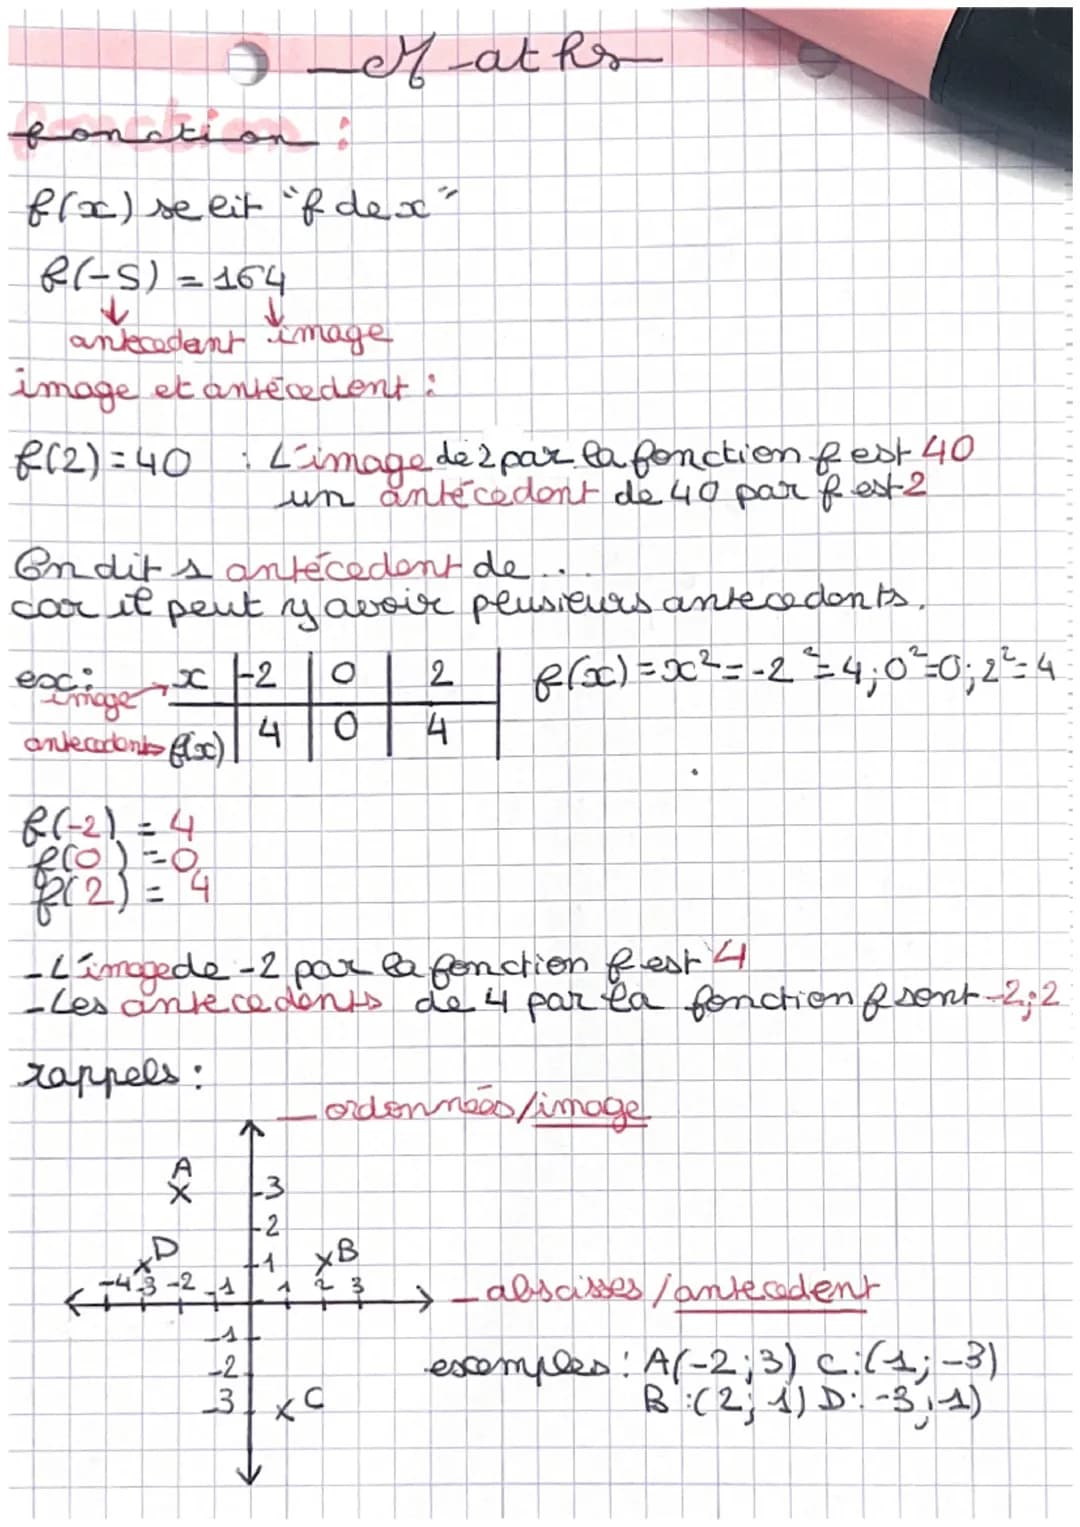 Maths
fonction :
f(x) se lit "f de x"
f(-5) = 164
antecedent image
image et antécedent :
f(2) = 40 : L'image de 2 par la fonction f est 40
un antécedent de 40 par f est 2
On dit 1 antécedent de ...
car il peut y avoir plusieurs antecedents.
ex: x -2 0 2 f(x) = x² = -2² = 4 ; 0² = 0 ; 2² = 4
image
antecedents f(x) 4 0 4
f(-2) = 4
f(0) = 0
f(2) = 4
- L'image de -2 par la fonction f est 4
- Les antecedents de 4 par la fonction f sont -2 ; 2
rappels :
ordonnées/image
A
3
2
D 1 B
-4 -3 -2 -1 1 2 3
abscisses / antecedent
-1
-2 exemples : A(-2 ; 3) C : (1 ; -3)
-3 C B : (2 ; 1) D : -3 ; 1)